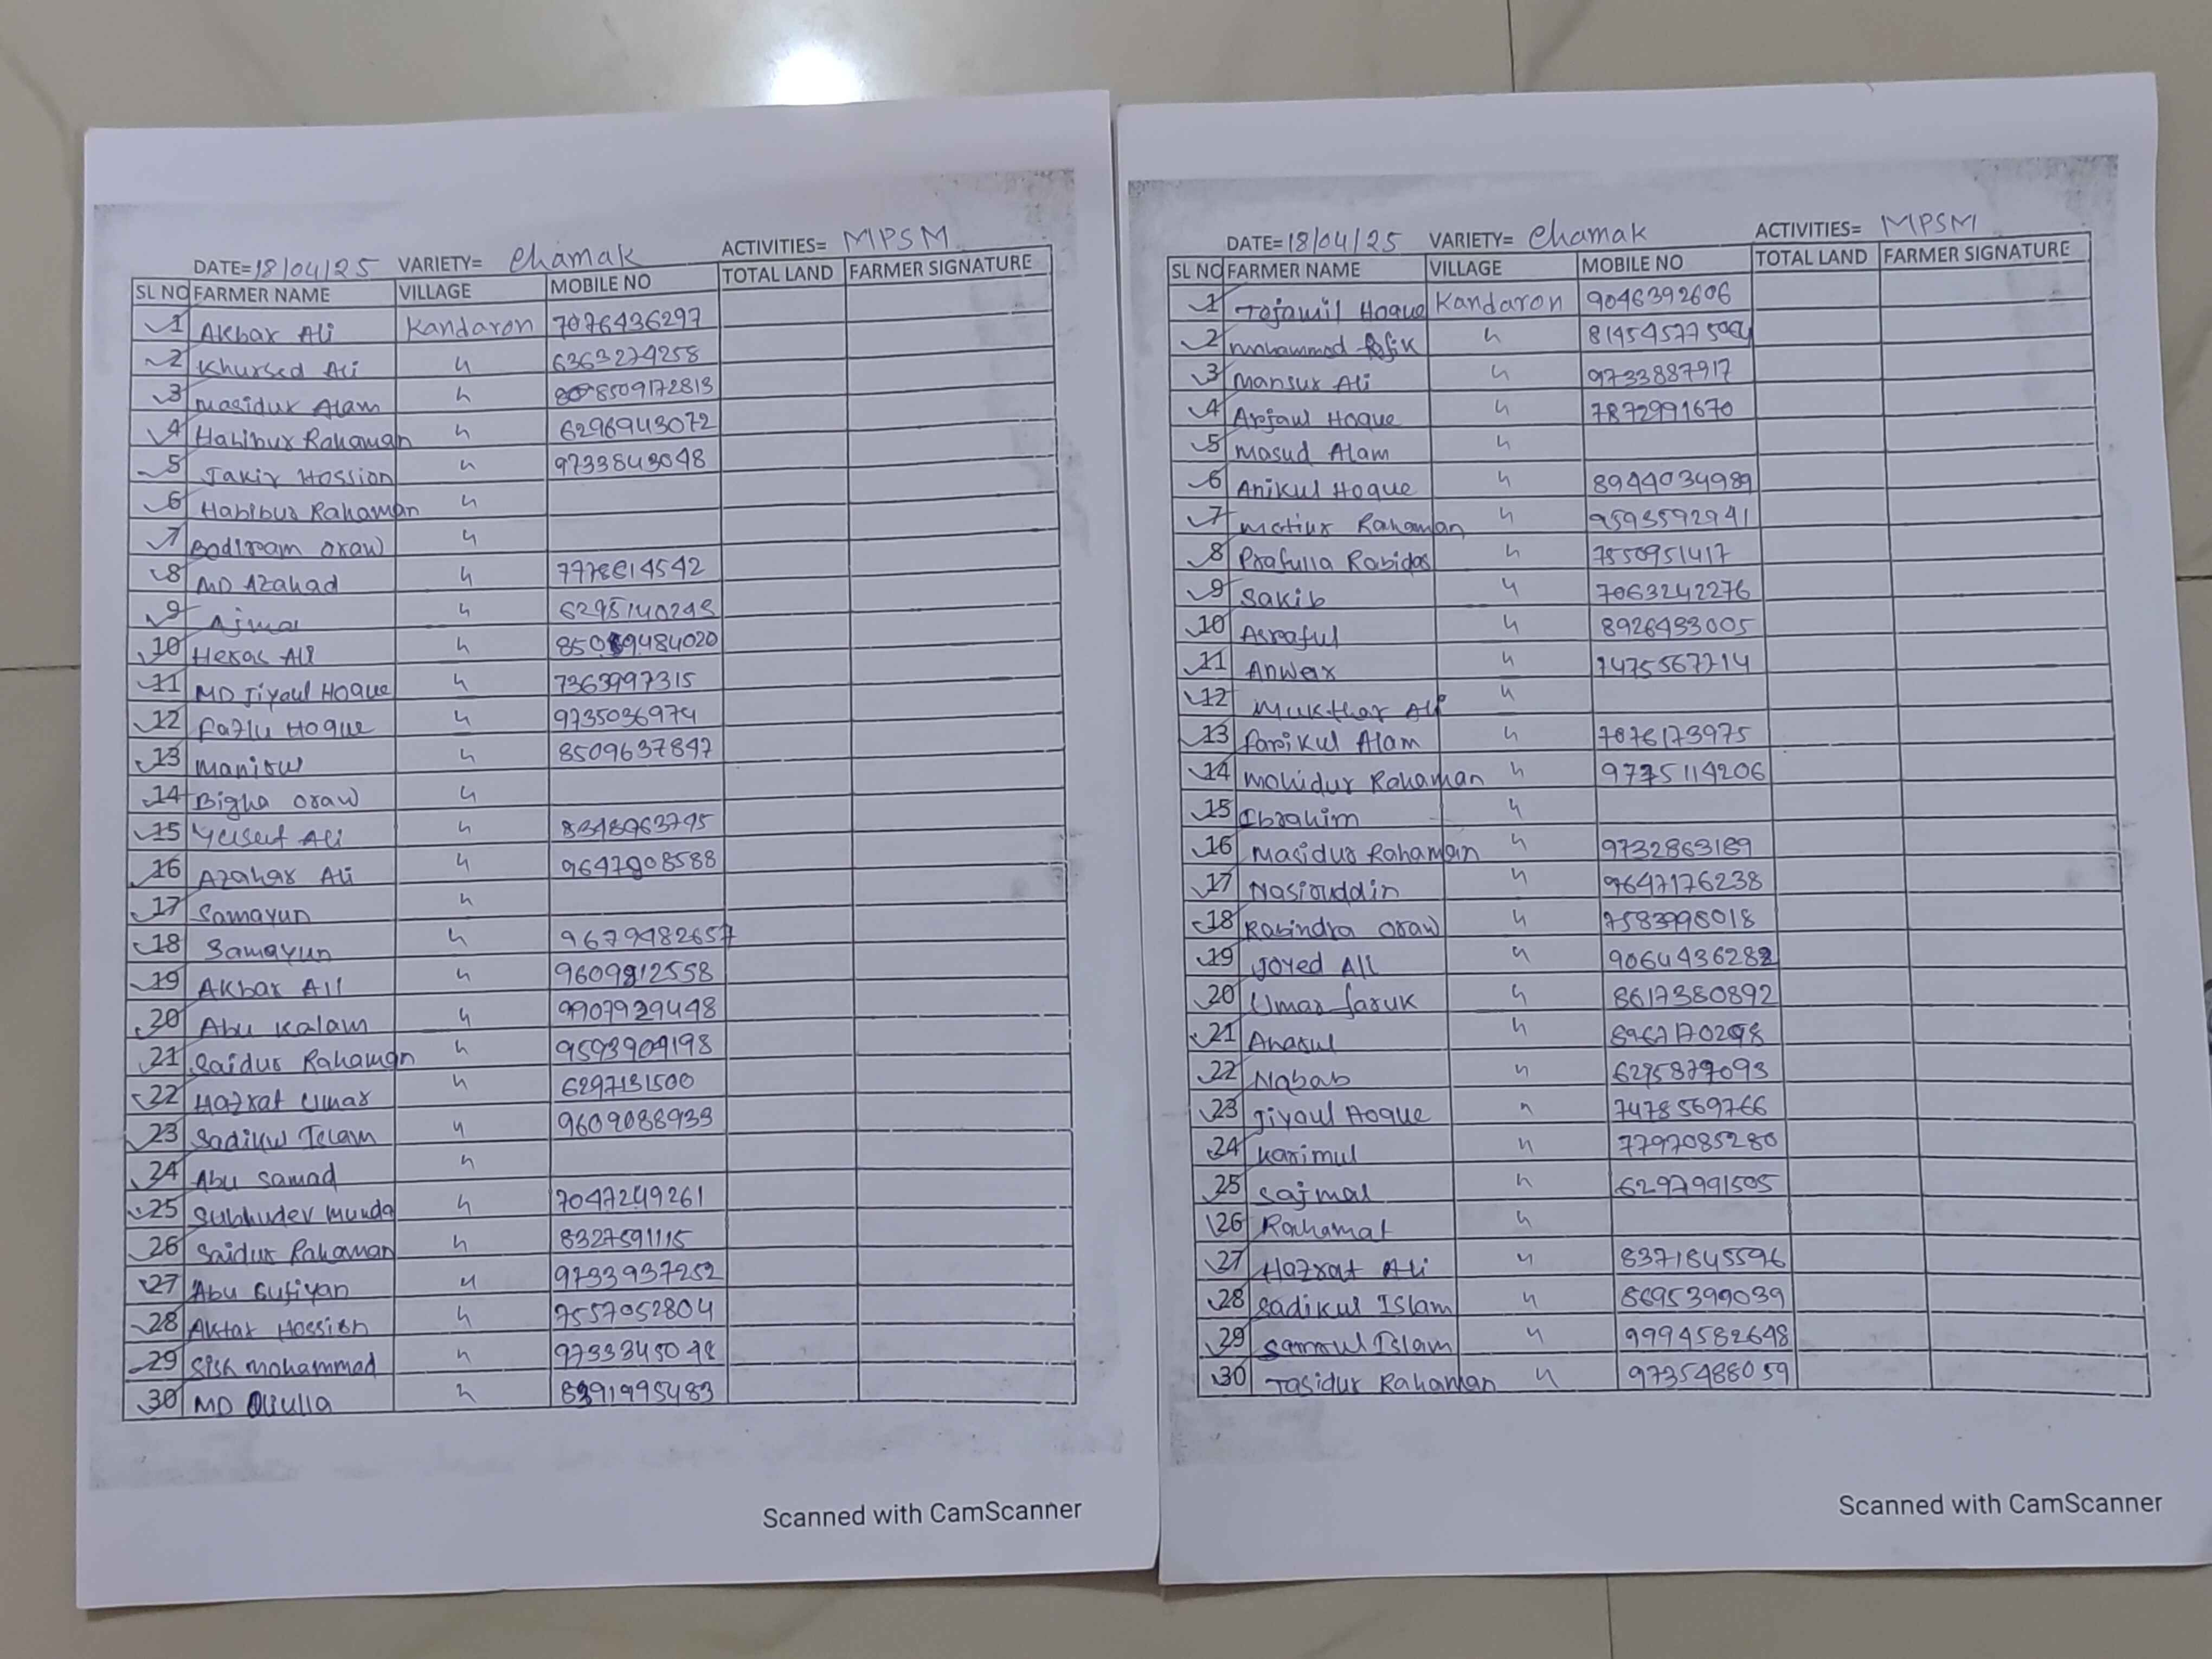 DATE= 18/04/25 VARIETY= Chamak ACTIVITIES= MPSM
SL NO FARMER NAME VILLAGE MOBILE NO TOTAL LAND FARMER SIGNATURE
1 Akbar Ali Kandaron 7076436297
2 Khursed Ali 〃 6363274258
3 Masidur Alam 〃 8509172813
4 Habibur Rahaman 〃 6296943072
5 Jakir Hossion 〃 9733843048
6 Habibur Rahaman 〃
7 Bodiram Oraw 〃
8 MD Azahad 〃
9 〃
10 Heras Ali 〃
11 MD Jiyaul Hoque 〃 7363997315
12 Fazlu Hoque 〃 9735036974
13 〃 8509637847
14 Bigha Oraw 〃
15 Yusuf Ali 〃
16 Azahar Ali 〃
17 Samayun 〃
18 Samayun 〃 9679482657
19 Akbar Ali 〃
20 Abu Kalam 〃 9907929448
21 Saidur Rahaman 〃 9593909198
22 Hazrat Umar 〃 6297131500
23 Sadikul Islam 〃 9609088933
24 Abu Samad 〃
25 Subhudev Munda 〃 7047249261
26 Saidur Rahaman 〃 8327591115
27 Abu Sufiyan 〃 9733937252
28 Aktar Hossion 〃 7557052804
29 Sish Mohammad 〃
30 MD 〃
Scanned with CamScanner
DATE= 18/04/25 VARIETY= Chamak ACTIVITIES= MPSM
SL NO FARMER NAME VILLAGE MOBILE NO TOTAL LAND FARMER SIGNATURE
1 Tojamil Hoque Kandaron 9046392606
2 Mohammad Rofik 〃
3 Mansur Ali 〃 9733887917
4 Arjaul Hoque 〃 7872991670
5 Masud Alam 〃
6 Anikul Hoque 〃 8944034989
7 Motiur Rahaman 〃 9593592941
8 Prafulla Rabidas 〃 7550951417
9 Sakib 〃 7063242276
10 Asraful 〃 8926433005
11 Anwar 〃
12 Mukthar Ali 〃
13 Farikul Alam 〃 7076173975
14 Mohidur Rahaman 〃 9775114206
15 Ibrahim 〃
16 Masidur Rahaman 〃 9732863189
17 Nasiruddin 〃 9647176238
18 Rabindra Oraw 〃
19 Joyed Ali 〃 9064436282
20 Umar Faruk 〃 8617380892
21 Anarul 〃
22 Nabab 〃
23 Jiyaul Hoque 〃 7478569766
24 Karimul 〃 7797085280
25 Sajmal 〃 6297991505
26 Rahamat 〃
27 Hazrat Ali 〃 8371845596
28 Sadikul Islam 〃 8695399039
29 Islam 〃
30 Tasidur Rahaman 〃 9735488059
Scanned with CamScanner